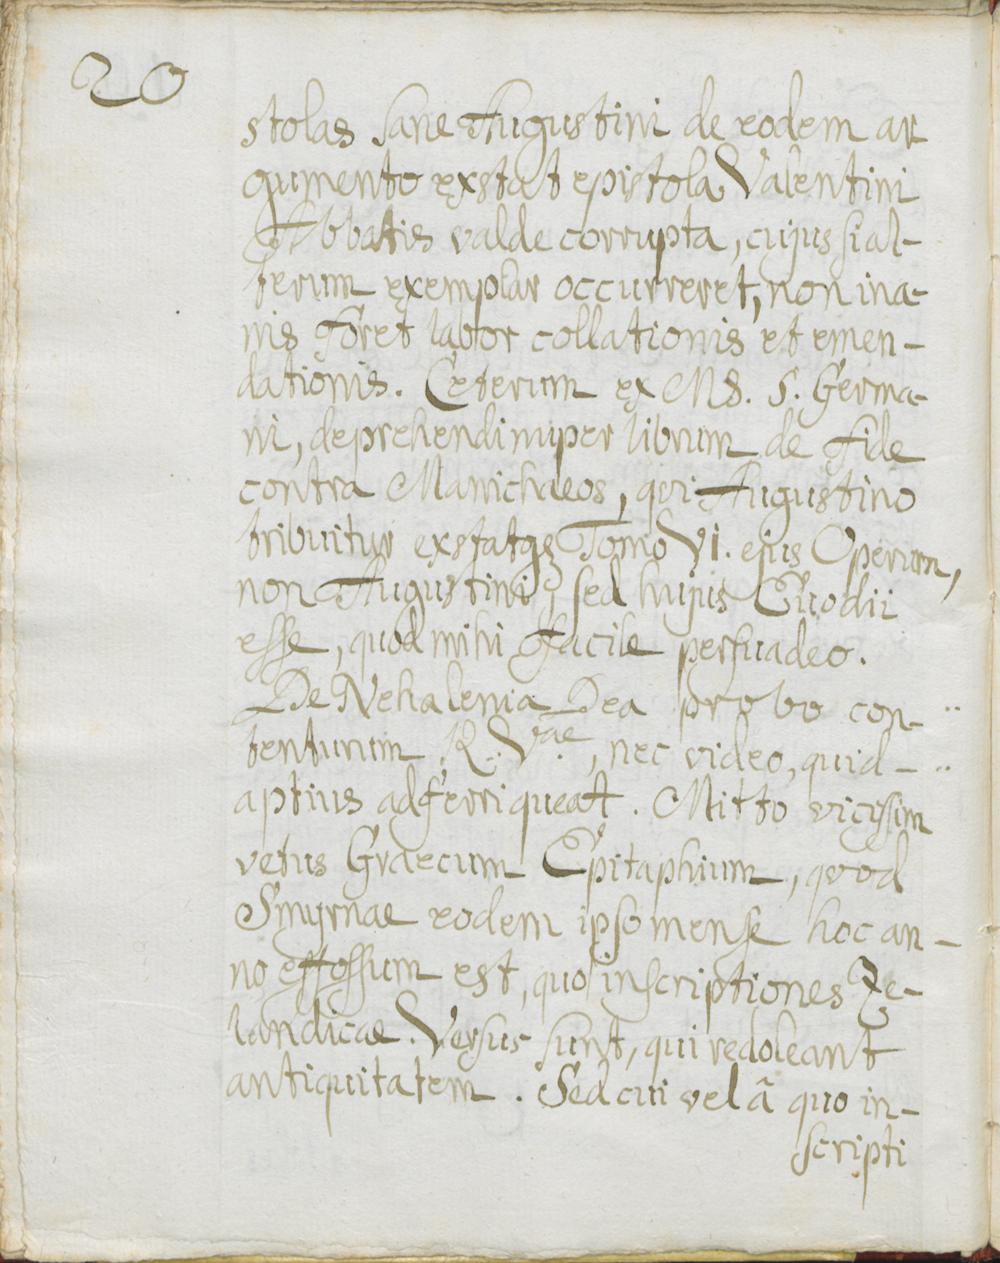 20
stolas sane Augustini de eodem ar
gumento exstat epistola Valentini
Abbatis valde corrupta, cujus si al-
terum exemplar occurreret, non ina-
nis foret labor collationis et emen-
dationis. Ceterum ex MS. S. Germa-
ni, deprehendi nuper librum de Fide
contra Manichaeos, qui Augustino
tribuitur exstatqz Tomo VI. ejus Operum,
non Augustini, sed hujus Euodii
esse, quod mihi facile persuadeo.
De Nehalenia Dea probo con-
tentum R. Vae, nec video, quid-
aptius adferri queat. Mitto vicissim
vetus Graecum Epitaphium, quod
Smyrnae eodem ipso mense hoc an-
no effossum est, quo inscriptiones Ze-
landicae. Versus sunt, qui redoleant
antiquitatem. Sed cui vel ã quo in-
scripti